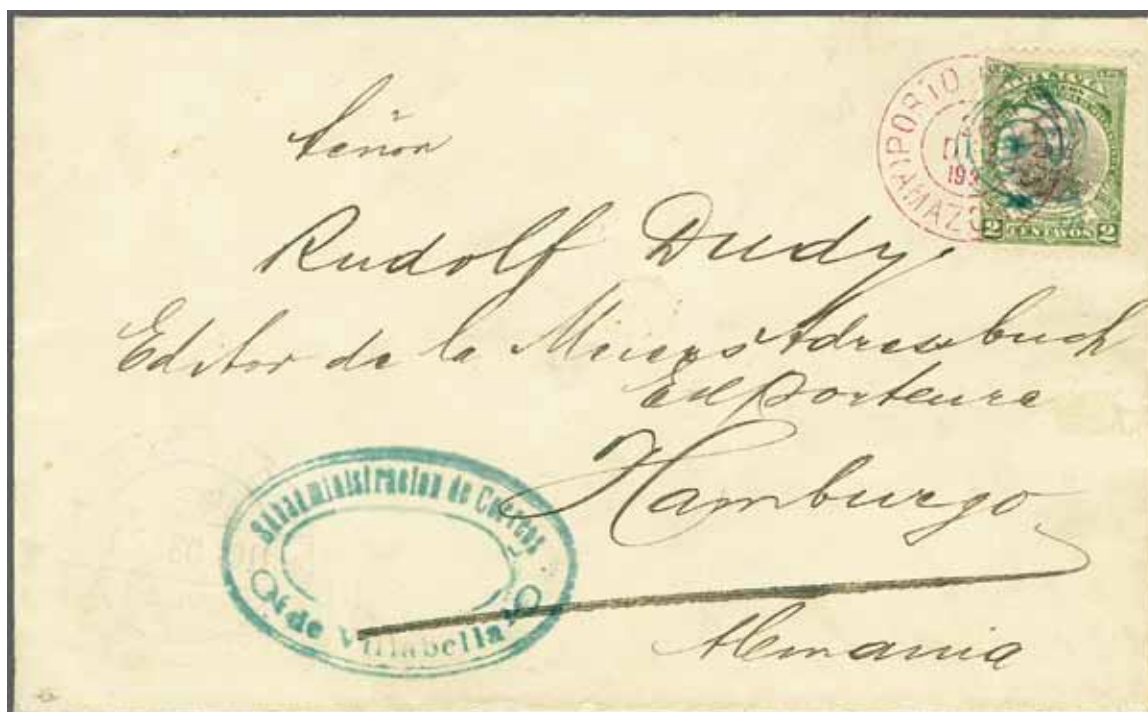 Señor
Rudolf Dudy.
Editor de la Meiers Adressbuch
Exporteure
Hamburgo
Alemania
Subadministracion de Correos
de Villabella
PORTO
AMAZO
DI
19
2 CENTAVOS 2